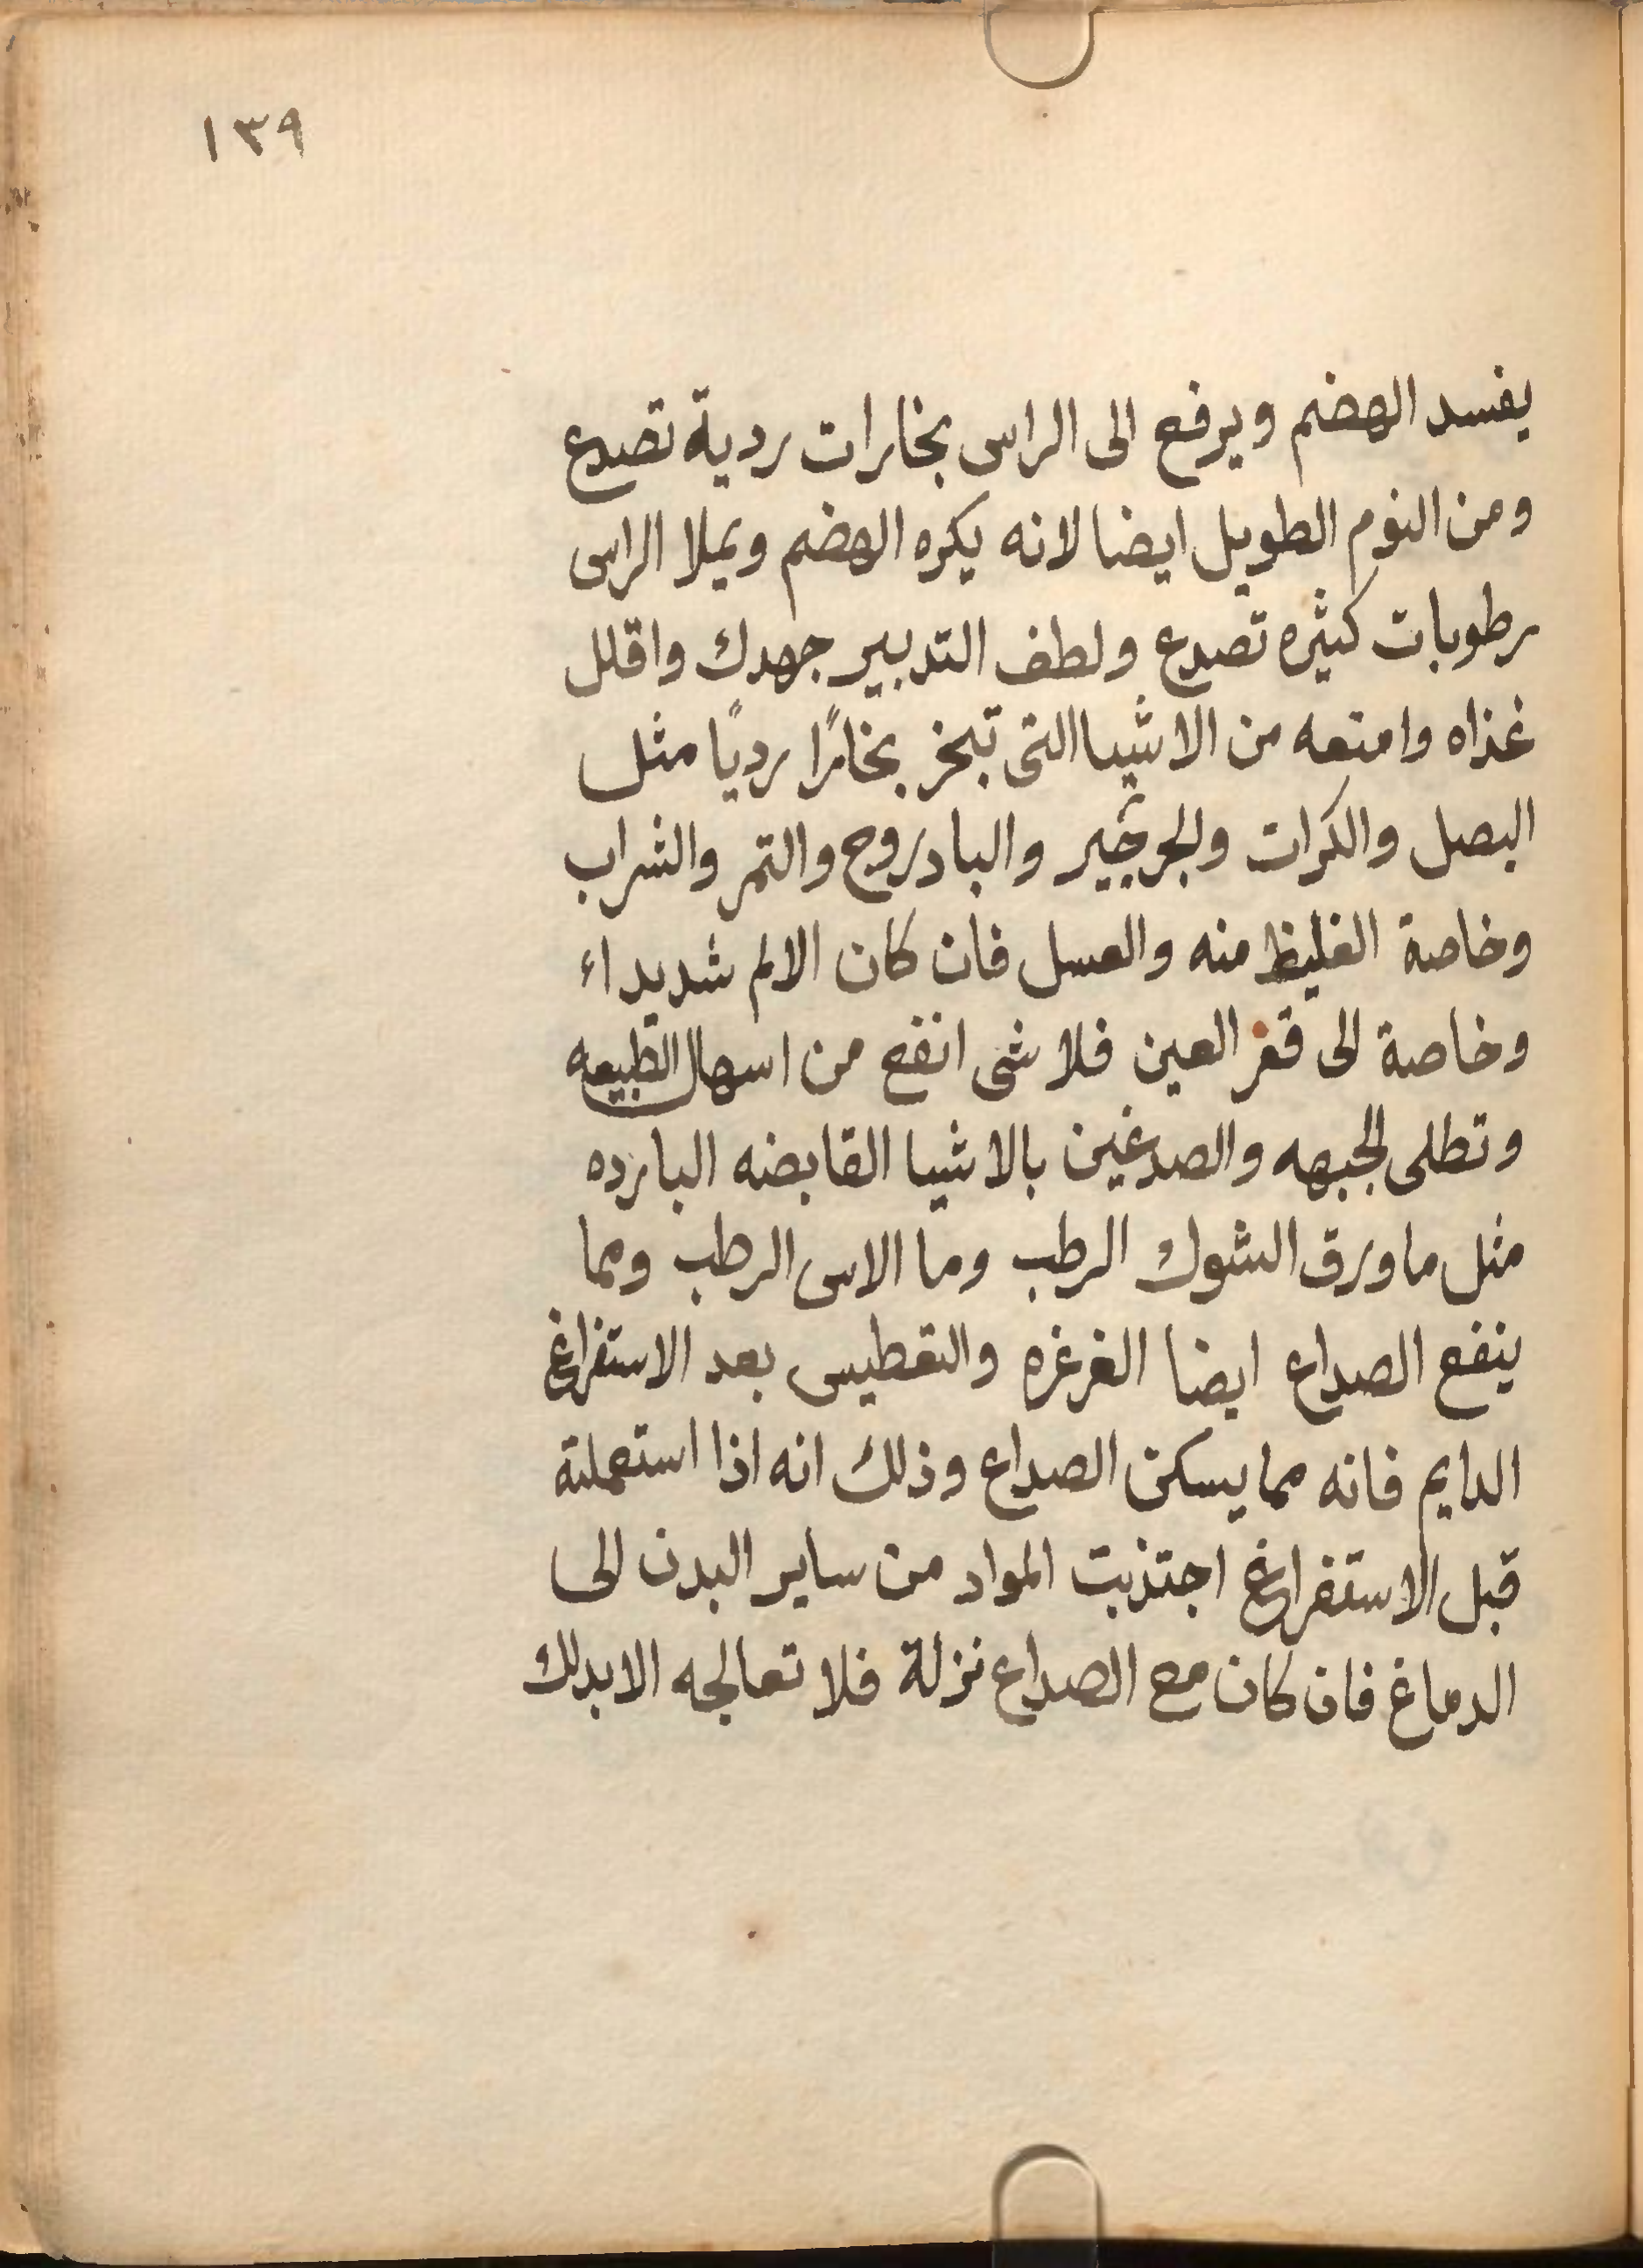 ١٣٩
يفسد الهضم ويرفع الى الراس بخارات ردية تصدع
ومن النوم الطويل ايضا لانه يكره الهضم ويملا الراس
رطوبات كثيره تصدع ولطف التدبير جهدك واقلل
غذاه وامنعه من الاشيا التى تبخر بخارًا رديًا مثل
البصل والكرات والجرجير والبادروج والتمر والشراب
وخاصة الغليظ منه والعسل فان كان الالم شديداء
وخاصة الى قعر العين فلا شى انفع من اسهال الطبيعه
وتطلى الجبهه والصدغين بالاشيا القابضه البارده
مثل ما ورق الشوك الرطب وما الاس الرطب ومما
ينفع الصداع ايضا الغرغره والتعطيس بعد الاستفراغ
الدايم فانه مما يسكن الصداع وذلك انه اذا استعملته
قبل الاستفراغ اجتذبت المواد من ساير البدن الى
الدماغ فان كان مع الصداع نزلة فلا تعالجه الا بدلك